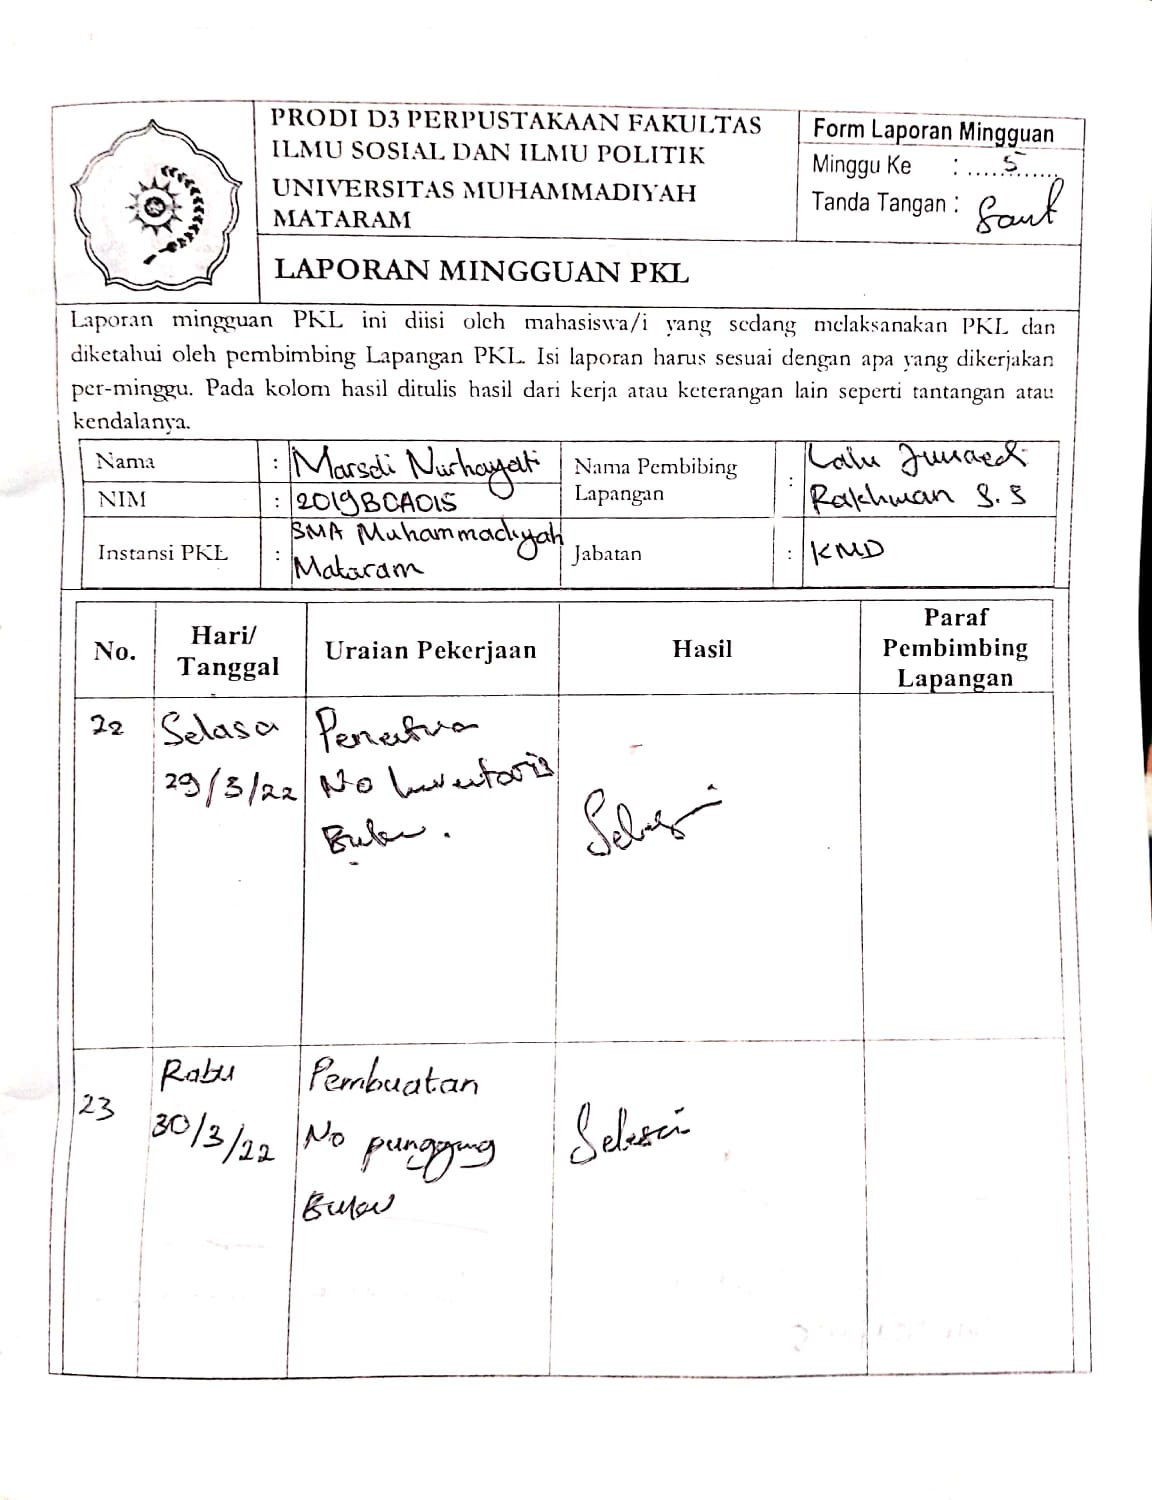 PRODI D3 PERPUSTAKAAN FAKULTAS
ILMU SOSIAL DAN ILMU POLITIK
UNIVERSITAS MUHAMMADIYAH
MATARAM
Form Laporan Mingguan
Minggu Ke : .....5............
Tanda Tangan :
LAPORAN MINGGUAN PKL
Laporan mingguan PKL ini diisi oleh mahasiswa/i yang sedang melaksanakan PKL dan
diketahui oleh pembimbing Lapangan PKL. Isi laporan harus sesuai dengan apa yang dikerjakan
per-minggu. Pada kolom hasil ditulis hasil dari kerja atau keterangan lain seperti tantangan atau
kendalanya.
Nama : Marsdi Nurhayati
NIM : 2019BCA015
Nama Pembibing
Lapangan :
Lalu Junaedi
Rakhman S.S
Instansi PKL :
SMA Muhammadiyah
Mataram
Jabatan : KMD
No.
Hari/
Tanggal
Uraian Pekerjaan
Hasil
Paraf
Pembimbing
Lapangan
22
Selasa
29/3/22
No Inventaris
Buku.
Selesai
23
Rabu
30/3/22
Pembuatan
No punggung
Buku
Selesai